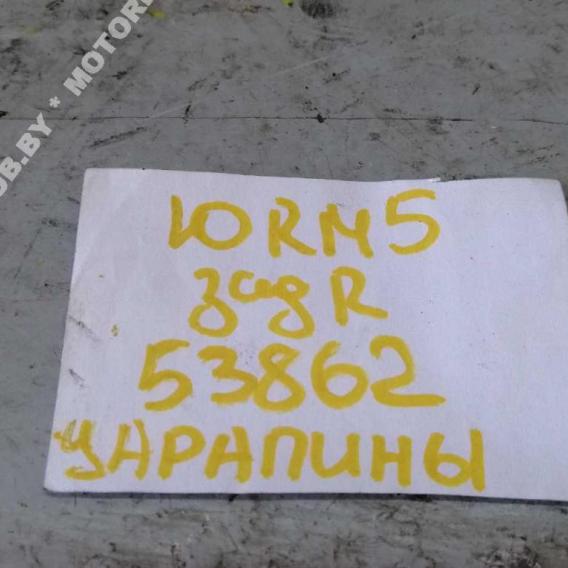 OB.BY * MOTOR
ЮRM5
зад R
53862
ЦАРАПИНЫ